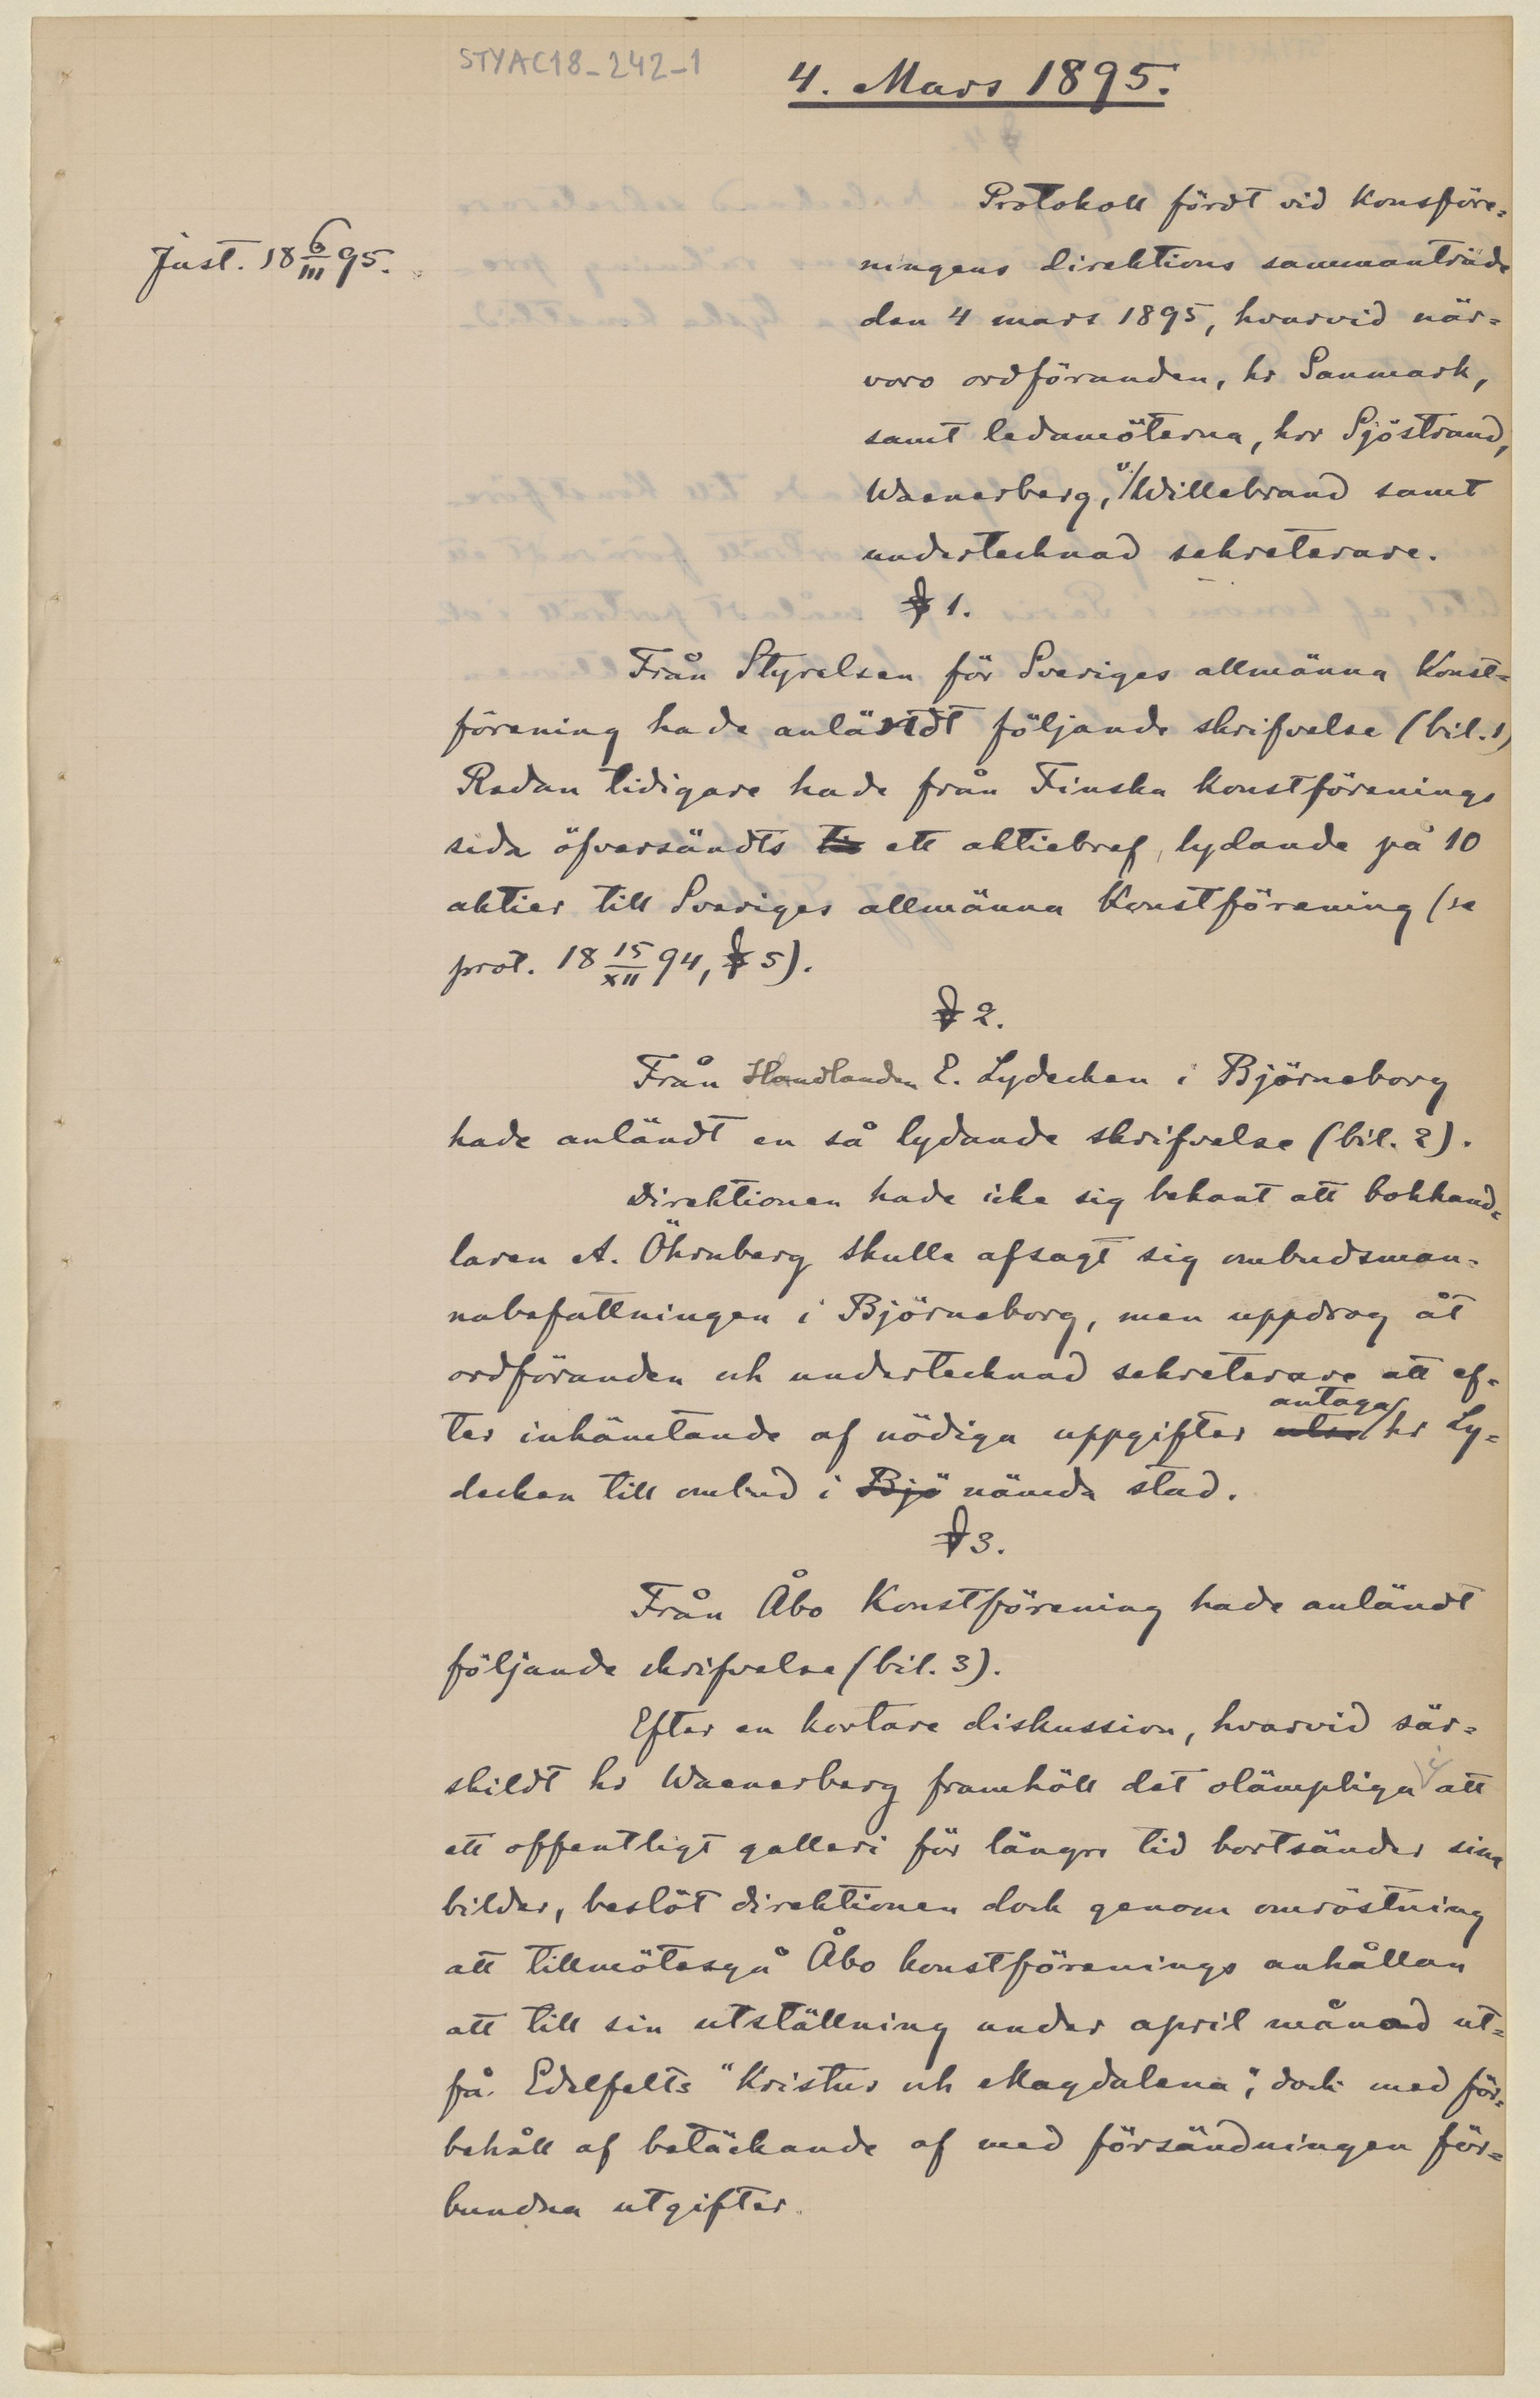 STYAC18_242_1
4. Mars 1895.
Just. 18 6/III 95.
Protokoll fördt vid Konsföre-
ningens direktions sammanträde
den 4 mars 1895, hvarvid när-
voro ordföranden, hr Sanmark,
samt ledamöterna, hrr Sjöstrand,
Waenerberg, v. Willebrand samt
undertecknad sekreterare.
§ 1.
Från Styrelsen för Sveriges allmänna Konst-
förening hade anländt följande skrifvelse (bil. 1)
Redan tidigare hade från Finska Konstförenings
sida öfversändts ett aktiebref, lydande på 10
aktier till Sveriges allmänna Konstförening (se
prot. 18 15/XII 94, § 5).
§ 2.
Från Handlanden E. Lydecken i Björneborg
hade anländt en så lydande skrifvelse (bil. 2).
Direktionen hade icke sig bekant att bokhand-
laren A. Öhrnberg skulle afsagt sig ombudsman-
nabefattningen i Björneborg, men uppdrog åt
ordföranden och undertecknad sekreterare att ef-
antaga
ter inhämtande af nödiga uppgifter utse hr Ly-
decken till ombud i Bjö nämda stad.
§ 3.
Från Åbo Konstförening hade anländt
följande skrifvelse (bil. 3).
Efter en kortare diskussion, hvarvid sär-
skildt hr Waenerberg framhöll det olämpliga i att
ett offentligt galleri för längre tid bortsänder sina
bilder, beslöt direktionen dock genom omröstning
att tillmötesgå Åbo konstförenings anhållan
att till sin utställning under april månad ut-
få Edelfelts "Kristus och Magdalena", dock med för-
behåll af betäckande af med försändningen för-
bundna utgifter.